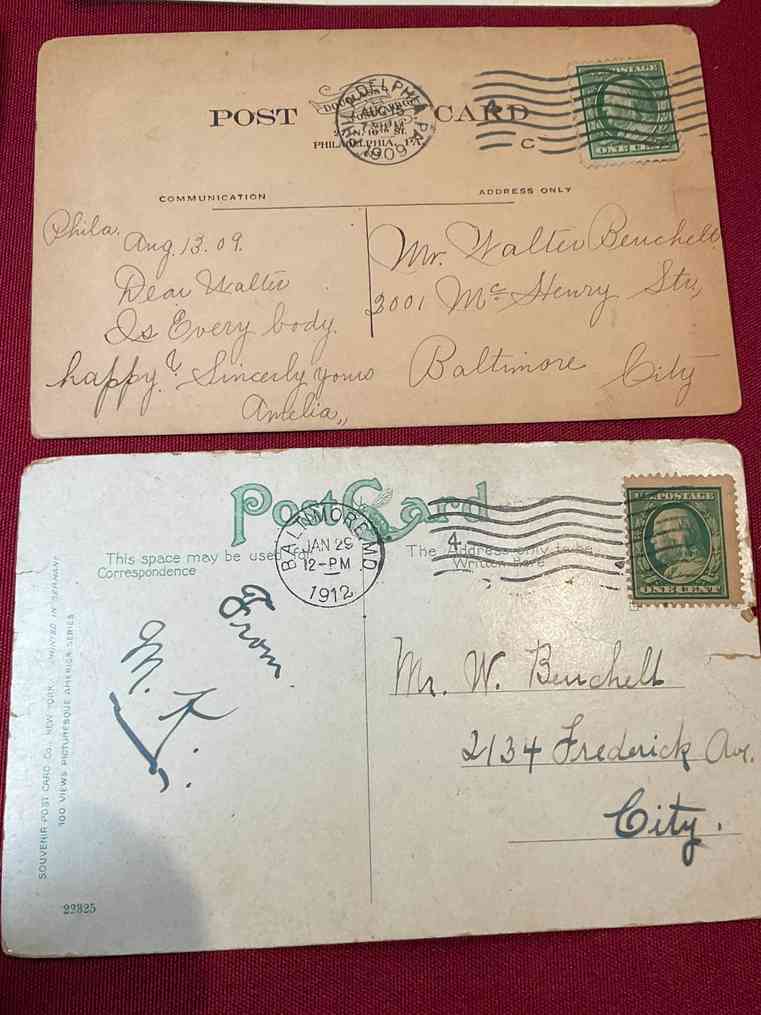 POST CARD
PHILADELPHIA, PA.
AUG 13
1909
PHILADELPHIA, PA.
C
U.S. POSTAGE
ONE CENT
COMMUNICATION
ADDRESS ONLY
Phila.
Aug. 13. 09.
Dear Walter
Is Every body
happy? Sincerly yours
Amelia,,
Mr. Walter Benchell
2001 Mc Henry Str,
Baltimore City
Post Card
BALTIMORE, MD.
JAN 29
12-PM
1912
4.
U.S. POSTAGE
ONE CENT
This space may be used for
Correspondence
The Address only to be
Written here
From
M. K.
Mr. W. Benchell
2134 Frederick Ave.
City.
SOUVENIR POST CARD CO., NEW YORK. PRINTED IN GERMANY
100 VIEWS PICTURESQUE AMERICA SERIES
22325